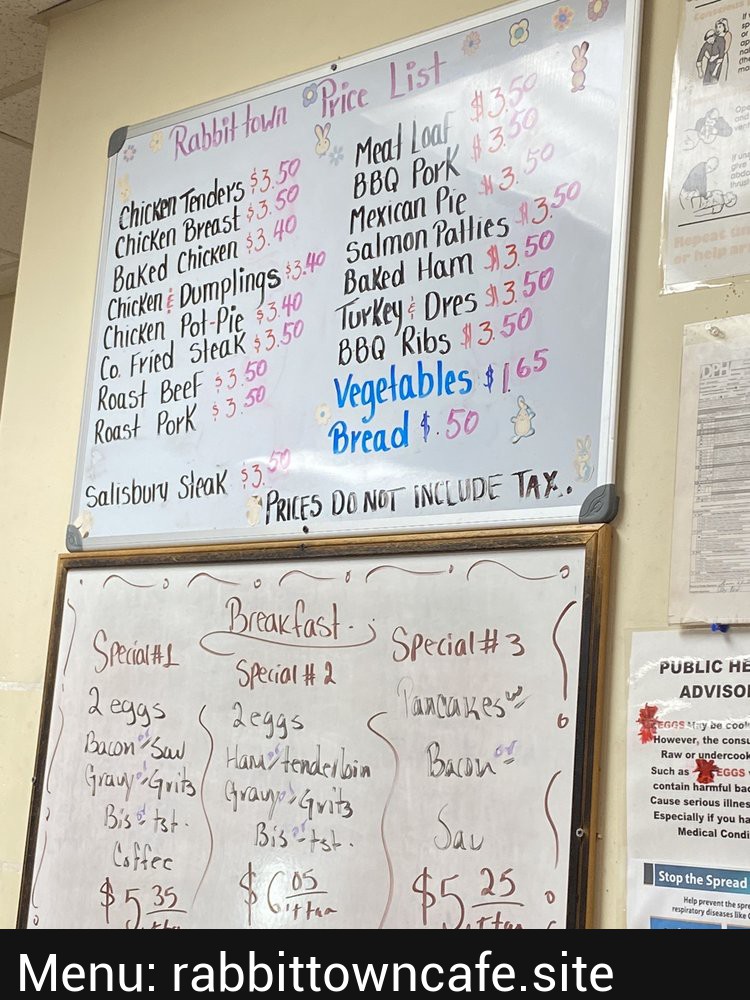 Rabbittown Price List
Chicken Tenders $3.50
Chicken Breast $3.50
Baked Chicken $3.40
Chicken & Dumplings $3.40
Chicken Pot-Pie $3.40
Co. Fried Steak $3.50
Roast Beef $3.50
Roast Pork $3.50
Salisbury Steak $3.50
Meat Loaf $3.50
BBQ Pork $3.50
Mexican Pie $3.50
Salmon Patties $3.50
Baked Ham $3.50
Turkey & Dres $3.50
BBQ Ribs $3.50
Vegetables $1.65
Bread $.50
PRICES DO NOT INCLUDE TAX.
Breakfast
Special #1
2 eggs
Bacon or Sau
Gravy or Grits
Bis or tst.
Coffee
$5 35
Special #2
2 eggs
Ham or tenderloin
Gravy or Grits
Bis or tst.
$6 05
Special #3
Pancakes w/
Bacon or
Sau
$5 25
DPH
PUBLIC HE
ADVISO
EGGS May be cook
However, the consu
Raw or undercook
Such as EGGS
contain harmful bac
Cause serious illnes
Especially if you ha
Medical Condi
Stop the Spread
Help prevent the spre
respiratory diseases like
Menu: rabbittowncafe.site